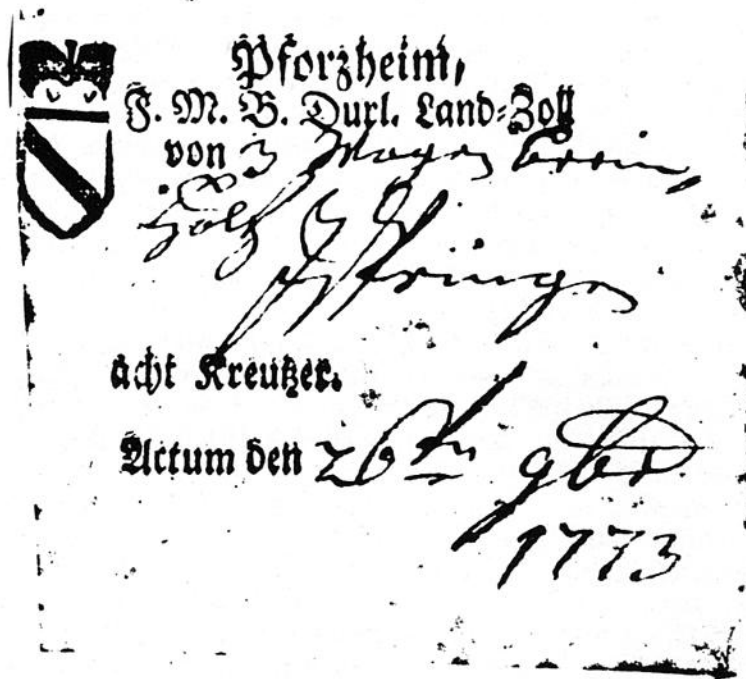 Pforzheim,
F. M. B. Durl. Land-Zoll
von 3 Wagen
Holz
acht Kreutzer.
Actum den 26ten 9br
1773